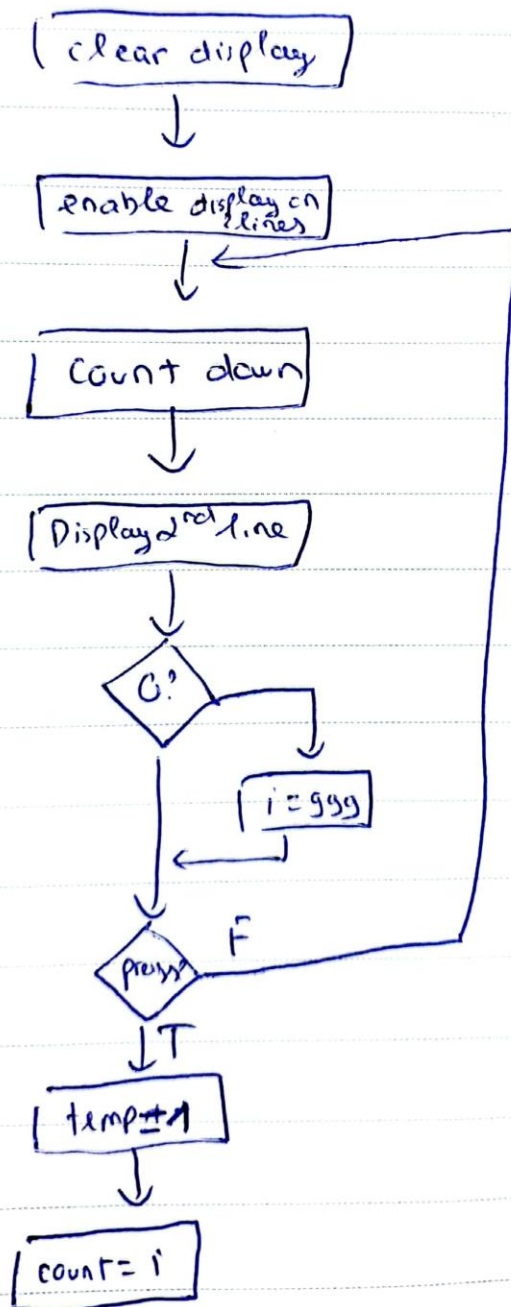 clear display
enable display on
2 lines
Count down
Display 2nd line
0?
i = 999
F
press?
T
count = i